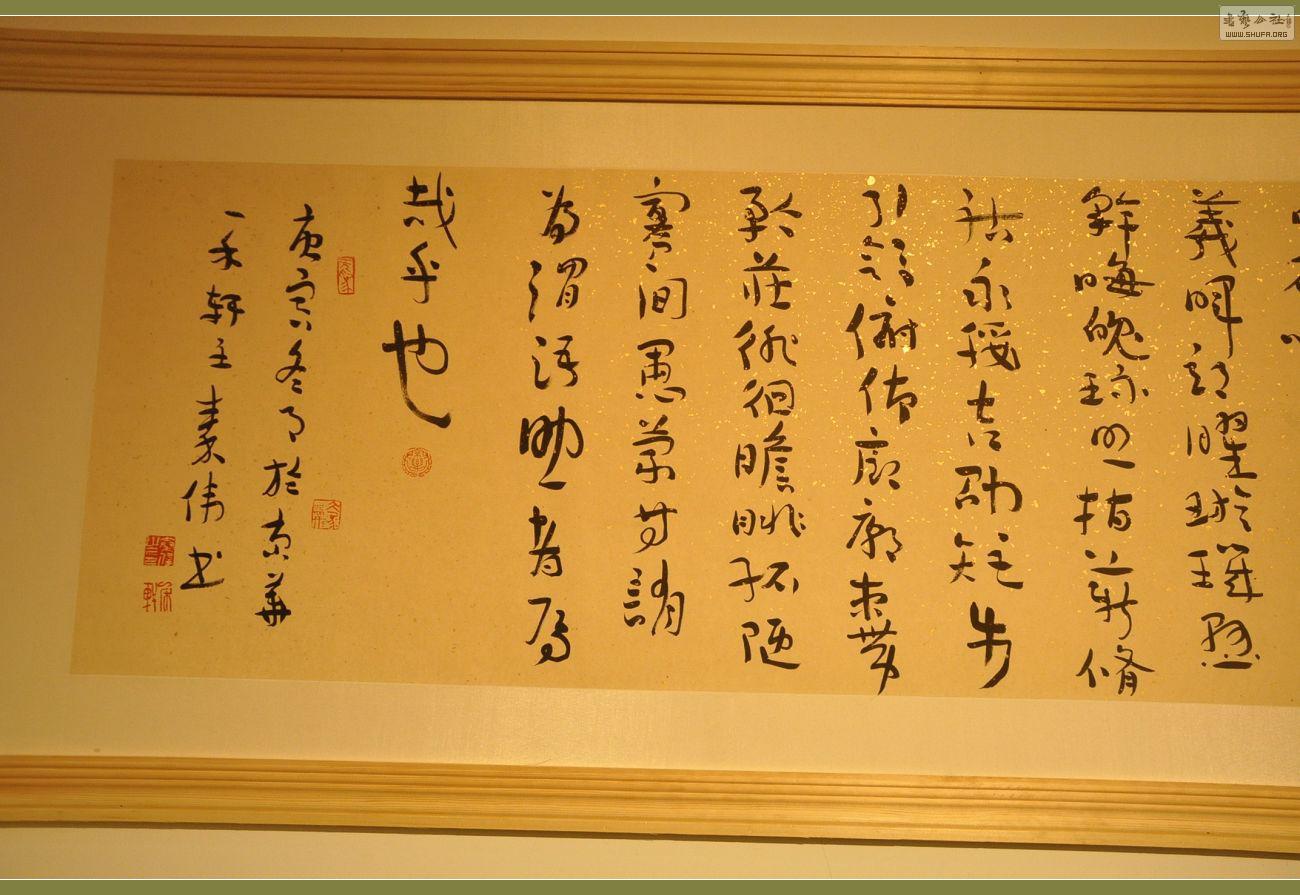 羲暉朗曜璇璣懸
斡晦魄环照指薪脩
祜永綏吉劭矩步
引領俯仰廊廟束帶
矜莊徘徊瞻眺孤陋
寡聞愚蒙等誚
為謂語助者焉
哉乎也
庚寅冬月於京華
一禾軒主素伟书
书艺公社
WWW.SHUFA.ORG